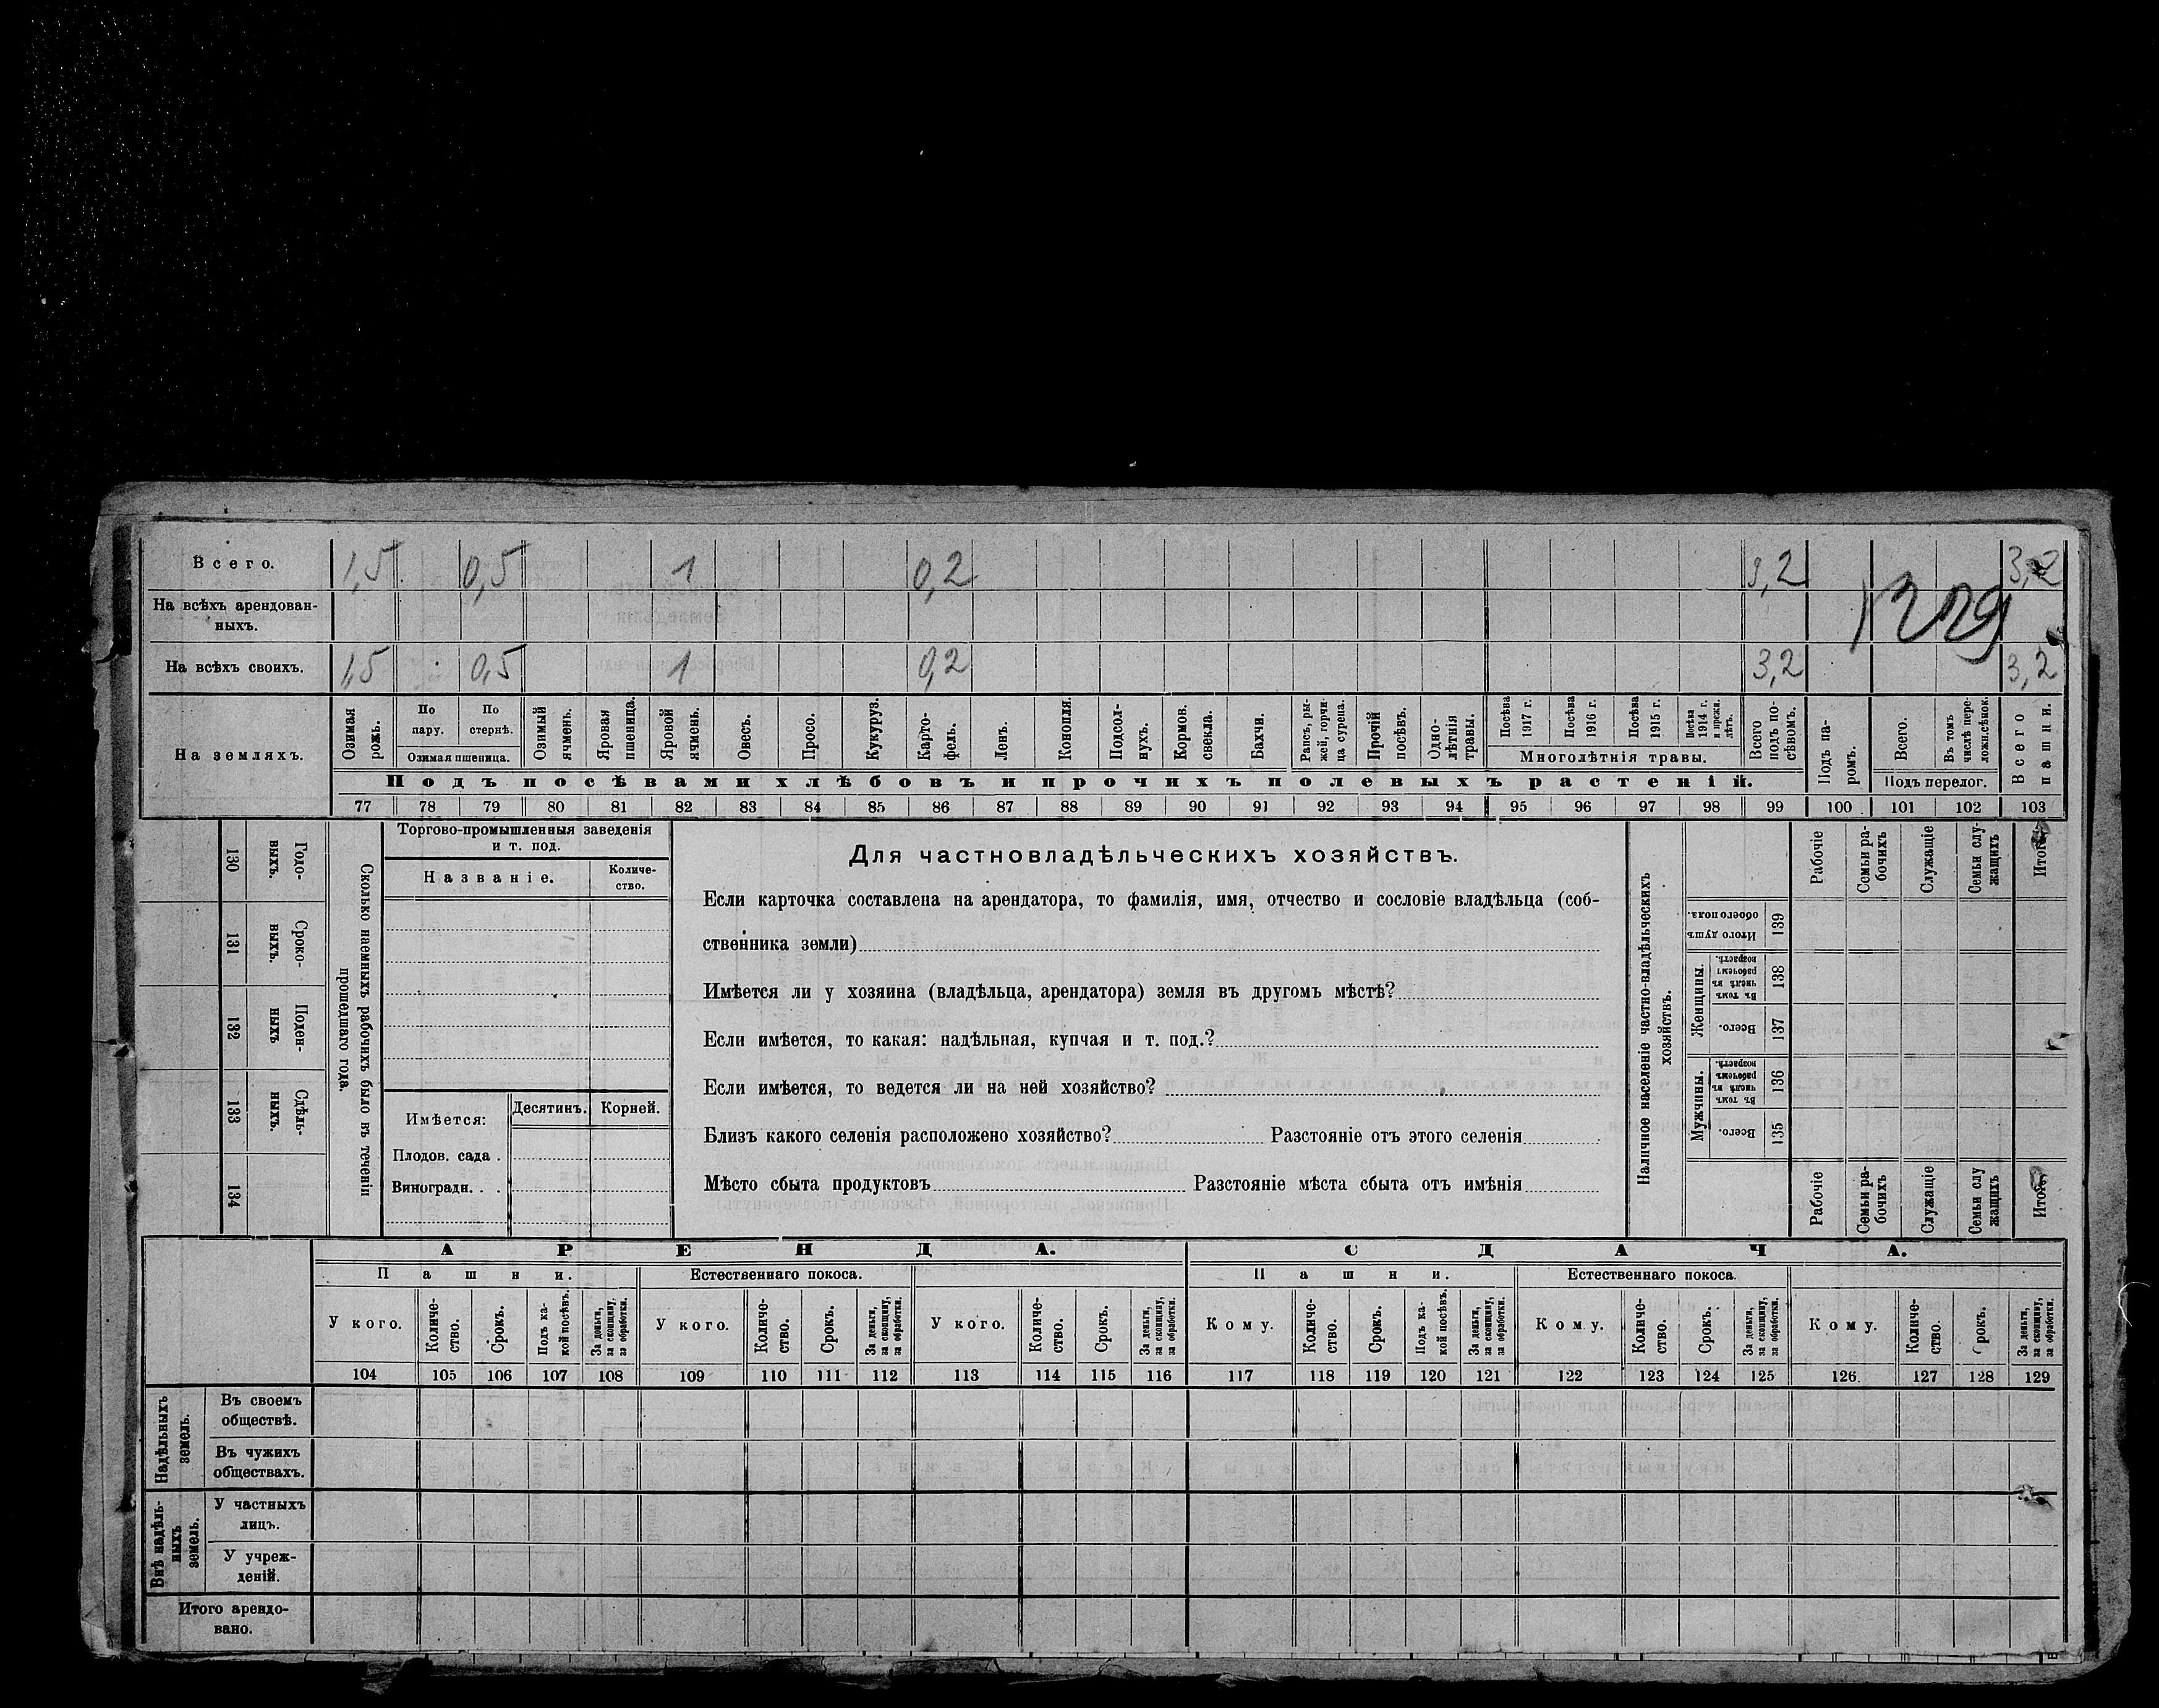 Всего. 1,5 0,5 1 0,2 3,2 3,2
На всѣхъ арендован-
ныхъ.
1229
На всѣхъ своихъ. 1,5 0,5 1 0,2 3,2 3,2
На земляхъ.
Озимая рожь.
По пару.
По стернѣ.
Озимая пшеница.
Озимый ячмень.
Яровая пшеница.
Яровой ячмень.
Овесъ.
Просо.
Кукуруз.
Карто-
фель.
Ленъ.
Конопля.
Подсол-
нухъ.
Кормов. свекла.
Бахчи.
Рапсъ, ры-
жей, горчи-
ца сурепа.
Прочій посѣвъ.
Одно-
лѣтнія травы.
Посѣва 1917 г.
Посѣва 1916 г.
Посѣва 1915 г.
Посѣва 1914 г. и прежн. лѣтъ.
Многолѣтнія травы.
Всего подъ по-
сѣвомъ.
Подъ па-
ромъ.
Всего.
Въ томъ числѣ пере-
ложн. сѣнок.
Подъ перелог.
Всего пашни.
Подъ посѣвами хлѣбовъ и прочихъ полевыхъ растеній.
77 78 79 80 81 82 83 84 85 86 87 88 89 90 91 92 93 94 95 96 97 98 99 100 101 102 103
130 Годо-
выхъ.
131 Сроко-
выхъ.
132 Поден-
ныхъ
133 Сдѣль-
ныхъ.
134
Сколько наемныхъ рабочихъ было въ теченіи
прошедшаго года.
Торгово-промышленныя заведенія
и т. под.
Названіе.
Количе-
ство.
Имѣется:
Десятинъ.
Корней.
Плодов. сада .
Виноградн. . .
Для частновладѣльческихъ хозяйствъ.
Если карточка составлена на арендатора, то фамилія, имя, отчество и сословіе владѣльца (соб-
ственника земли)
Имѣется ли у хозяина (владѣльца, арендатора) земля въ другомъ мѣстѣ?
Если имѣется, то какая: надѣльная, купчая и т. под.?
Если имѣется, то ведется ли на ней хозяйство?
Близъ какого селенія расположено хозяйство? Разстояніе отъ этого селенія
Мѣсто сбыта продуктовъ Разстояніе мѣста сбыта отъ имѣнія
Наличное населеніе частно-владѣльческихъ
хозяйствъ.
Рабочіе
Семьи ра-
бочихъ
Служащіе
Семьи слу-
жащихъ
Итого
Итого душъ обоего пола. 139
Женщины.
Въ томъ числѣ въ рабочемъ возрастѣ. 138
Всего. 137
Мужчины.
Въ томъ числѣ въ рабочемъ возрастѣ. 136
Всего. 135
Рабочіе
Семьи ра-
бочихъ
Служащіе
Семьи слу
жащихъ
Итого
АРЕНДА. СДАЧА.
Пашни. Естественнаго покоса. Пашни. Естественнаго покоса.
У кого.
Количе-
ство.
Срокъ.
Подъ ка-
кой посѣвъ.
За деньги,
за скопщину,
за обработки.
У кого.
Количе-
ство.
Срокъ.
За деньги,
за скопщину,
за обработки.
У кого.
Количе-
ство.
Срокъ.
За деньги,
за скопщину,
за обработки.
Кому.
Количе-
ство.
Срокъ.
Подъ ка-
кой посѣвъ.
За деньги,
за скопщину,
за обработки.
Кому.
Количе-
ство.
Срокъ.
За деньги,
за скопщину,
за обработки.
Кому.
Количе-
ство.
рокъ.
За деньги,
за скопщину,
за обработки.
104 105 106 107 108 109 110 111 112 113 114 115 116 117 118 119 120 121 122 123 124 125 126. 127 128 129
Надѣльныхъ
земель.
Въ своемъ
обществѣ.
Въ чужихъ
обществахъ.
Внѣ надѣль-
ныхъ
земель.
У частныхъ
лицъ.
У учреж-
деній.
Итого арендо-
вано.